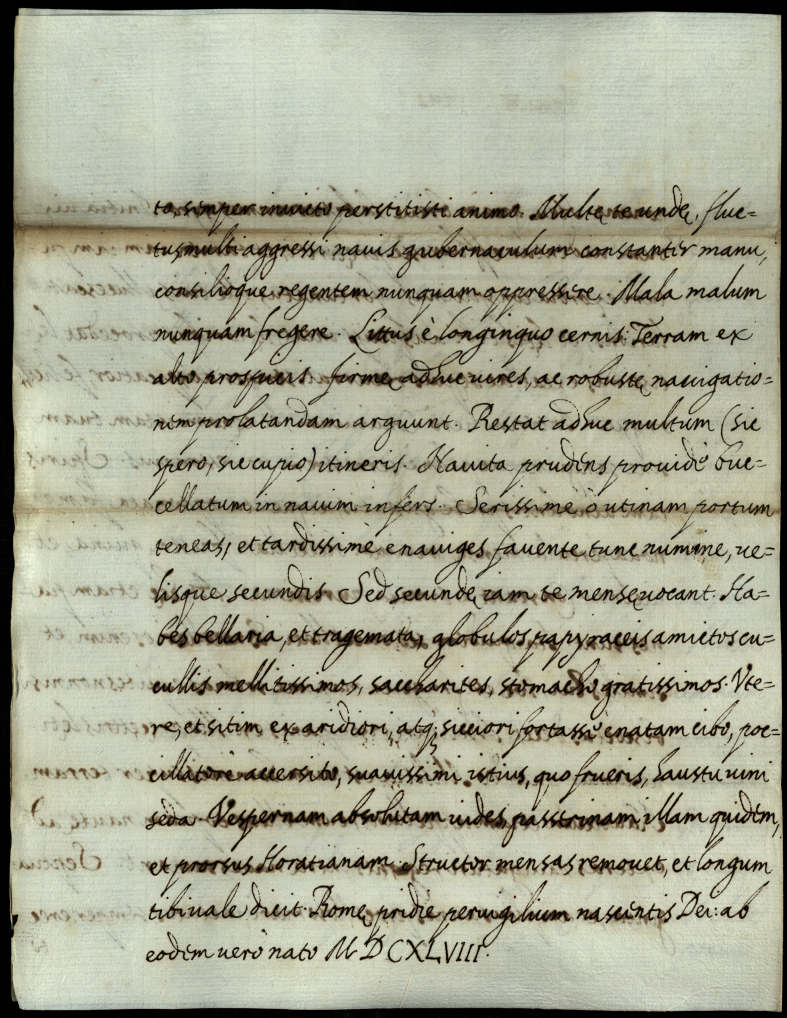 to, semper inuicto perstitisti animo. Multę te undę, fluc=
tus multi aggressi nauis gubernaculum constanter manu,
consilioque regentem nunquam oppressere. Mala malum
nunquam fregere. Littus è longinquo cernis: Terram ex
alto prospicis. firmę adhuc uires, ac robustę nauigatio=
nem prolatandam arguunt. Restat adhuc multum (sic
spero, sic cupio) itineris. Nauita prudens prouidè buc=
cellatum in nauim infers. Serissimè ò utinam portum
teneas, et tardissimè enauiges fauente tunc numine, ue=
lisque secundis. Sed secundę iam te mensę uocant. Ha=
bes bellaria, et tragemata, globulos papyraceis amictos cu=
cullis mellitissimos, saccharites, stomacho gratissimos. Vte=
re, et sitim ex aridiori, atq; sicciori fortassè enatam cibo, poc=
cillatore accersito, suauissimi istius, quo frueris, haustu uini
seda. Vespernam absolutam uides, passtrinam illam quidem,
et prorsus Horatianam. Structor mensas remouet, et longum
tibi uale dicit. Romę pridie peruigilium nascentis Dei: ab
eodem uerò nato M DCXLVIII.